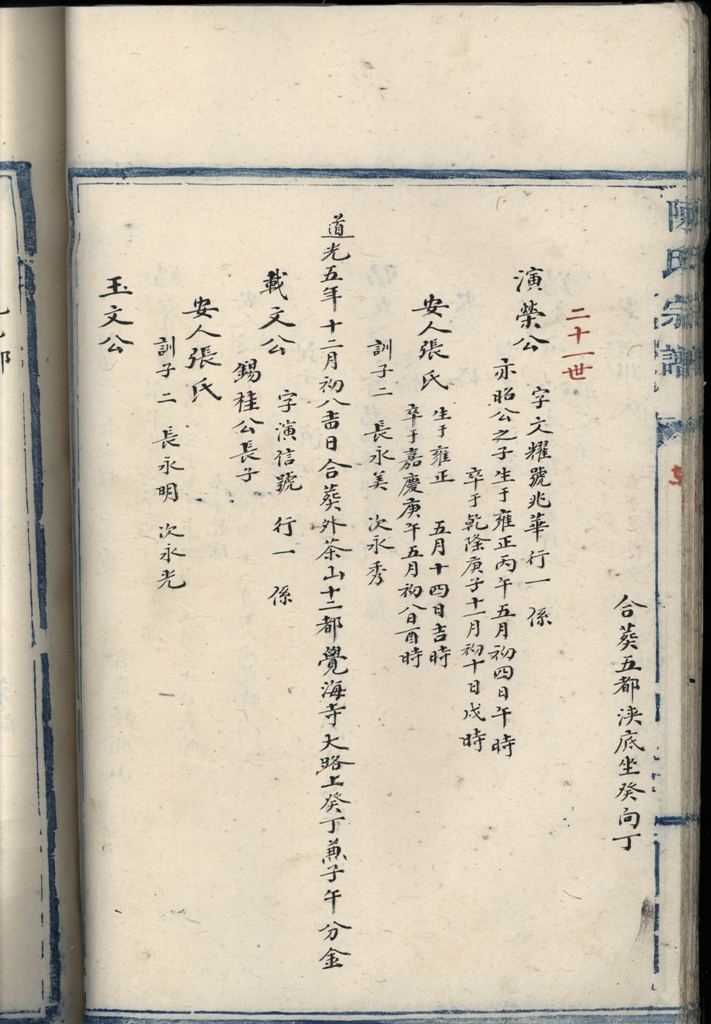 陳氏宗譜
合葵五都浹底坐癸向丁
二十一世
演榮公 字文耀號兆華行一 係
亦昭公之子生于雍正丙午五月初四日午時
卒于乾隆庚子十一月初十日戌時
安人張氏 生于雍正 五月十四日吉時
卒于嘉慶庚午五月初八日酉時
訓子二 長永美 次永秀
道光五年十二月初八吉日合葵外茶山十二都覺海寺大路上癸丁兼子午分金
載文公 字演信號 行一 係
錫桂公長子
安人張氏
訓子二 長永明 次永光
玉文公